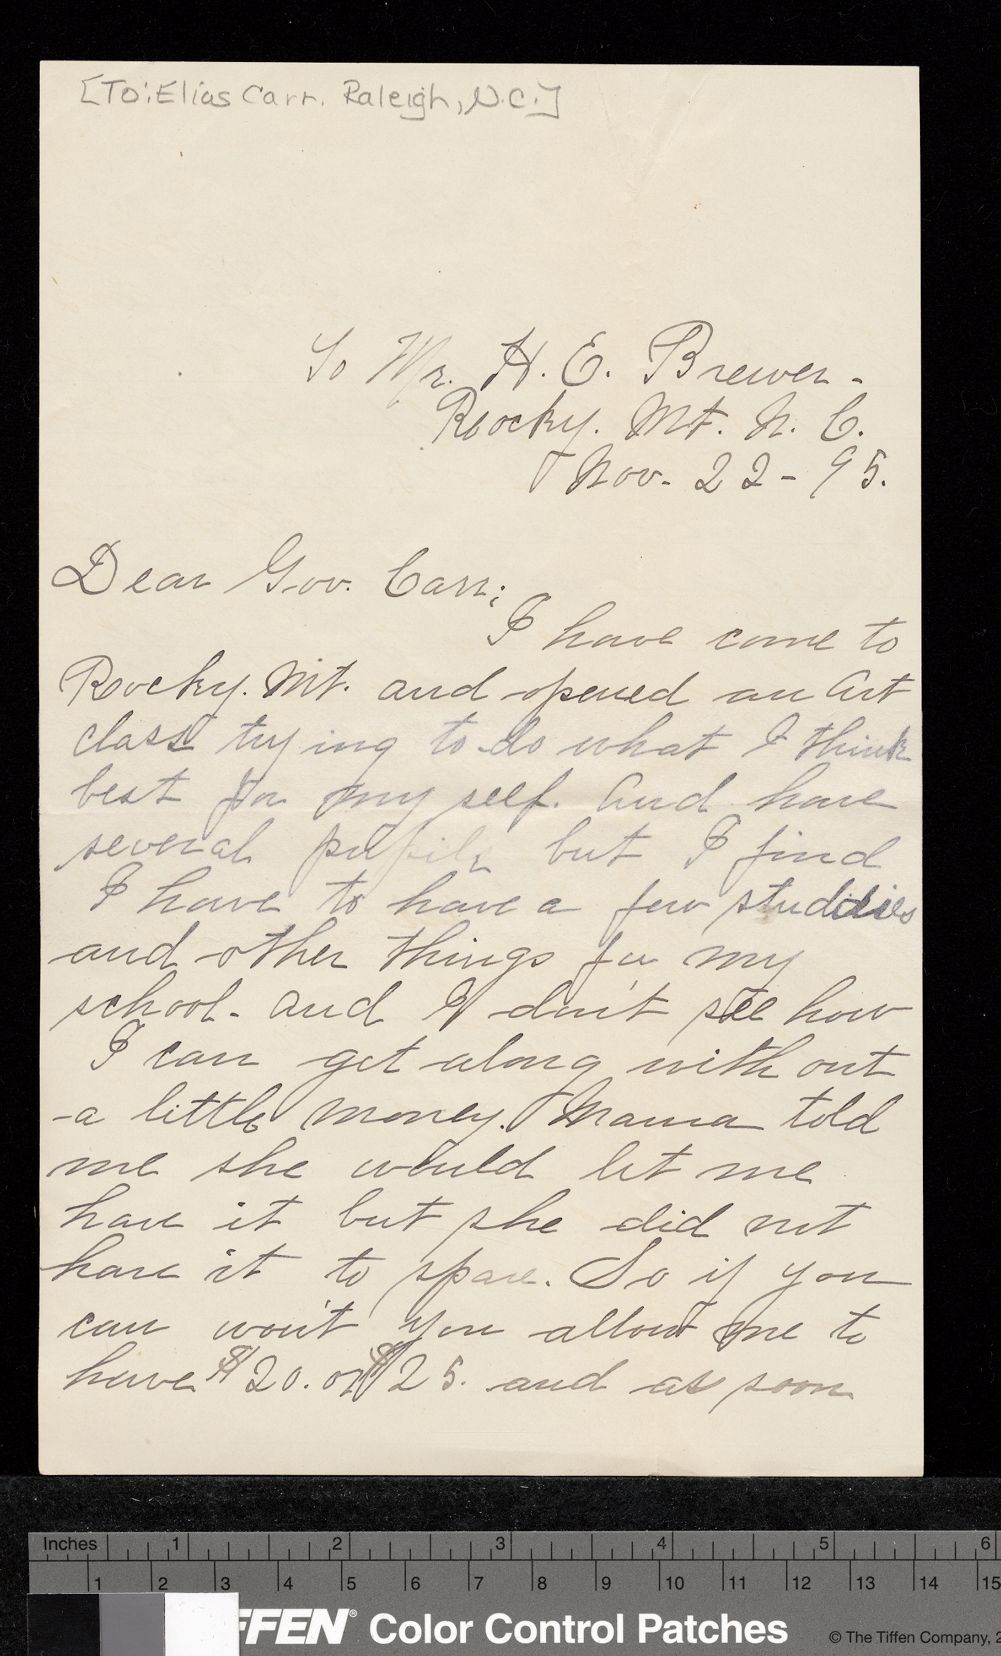 [To: Elias Carr. Raleigh, N.C.]
To Mr. H. E. Brewer -
Rocky. Mt. N. C.
Nov. 22 - 95.
Dear Gov. Carr;
I have come to
Rocky. Mt. and opened an Art
class trying to do what I think
best for my self. And have
several pupils but I find
I have to have a few studdies
and other things for my
school - and I don't see how
I can get along with out
a little money. Mama told
me she would let me
have it but she did not
have it to spare. So if you
can won't you allow me to
have $20. or $25. and as soon
Inches 1 2 3 4 5 6
1 2 3 4 5 6 7 8 9 10 11 12 13 14 15
FFEN® Color Control Patches © The Tiffen Company, 2